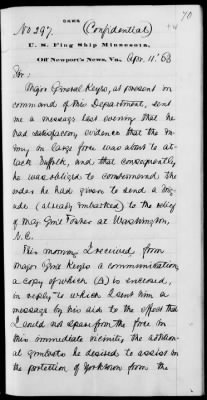 70
No 297. (Confidential)
U. S. Flag Ship Minnesota,
Off Newport's News, Va., Apr. 11th 63
Sir:
Major General Keyes, at present in
command of this Department, sent
me a message last evening that he
had satisfactory evidence that the ene-
my in large force was about to at-
tack Suffolk, and that consequently,
he was obliged to countermand the
order he had given to send a brig-
ade (already embarked) to the relief
of Maj. Gen'l Foster at Washington,
N.C.
This morning I received from
Major Gen'l Keyes a communication,
a copy of which (A) is enclosed,
in reply to which I sent him a
message by his aid to the effect that
I could not spare from the force in
this immediate vicinity the addition-
al gunboats he desired to assist in
the protection of Yorktown from the